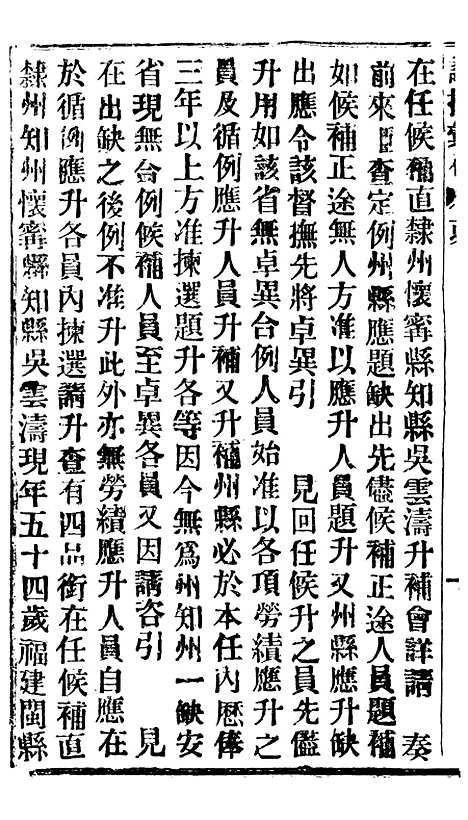 在任候補直隸州懷寗縣知縣吳雲濤升補會詳請 奏
前來臣查定例州縣應題缺出先儘候補正途人員題補
如候補正途無人方准以應升人員題升又州縣應升缺
出應令該督撫先將卓異引 見回任候升之員先儘
升用如該省無卓異合例人員始准以各項勞績應升之
員及循例應升人員升補又升補州縣必於本任內歷俸
三年以上方准揀選題升各等因今無爲州知州一缺安
省現無合例候補人員至卓異各員又因請咨引 見
在出缺之後例不准升此外亦無勞績應升人員自應在
於循例應升各員內揀選請升查有四品銜在任候補直
隸州知州懷寗縣知縣吳雲濤現年五十四歲福建閩縣